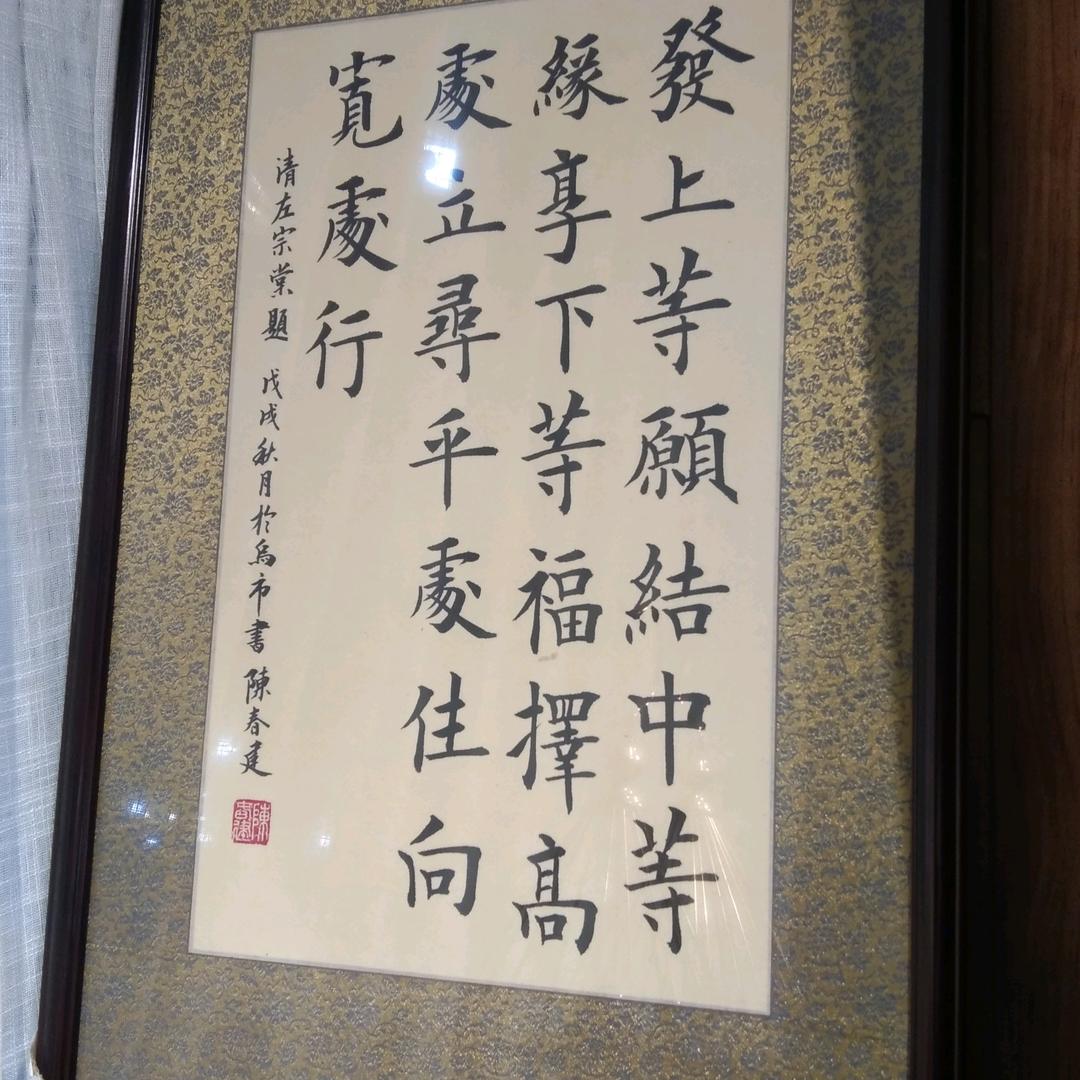 發上等願結中等
緣享下等福擇高
處立尋平處住向
寬處行
清左宗棠題 戊戌秋月於烏市書 陳春建
陳春建